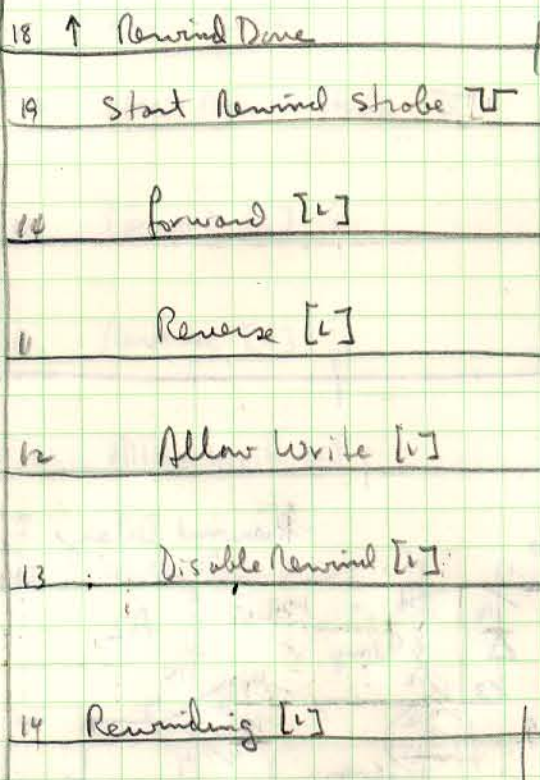 18 ↑ Rewind Done
19 Start Rewind Strobe
10 forward [L]
11 Reverse [L]
12 Allow Write [L]
13 Disable Rewind [L]
14 Rewinding [L]